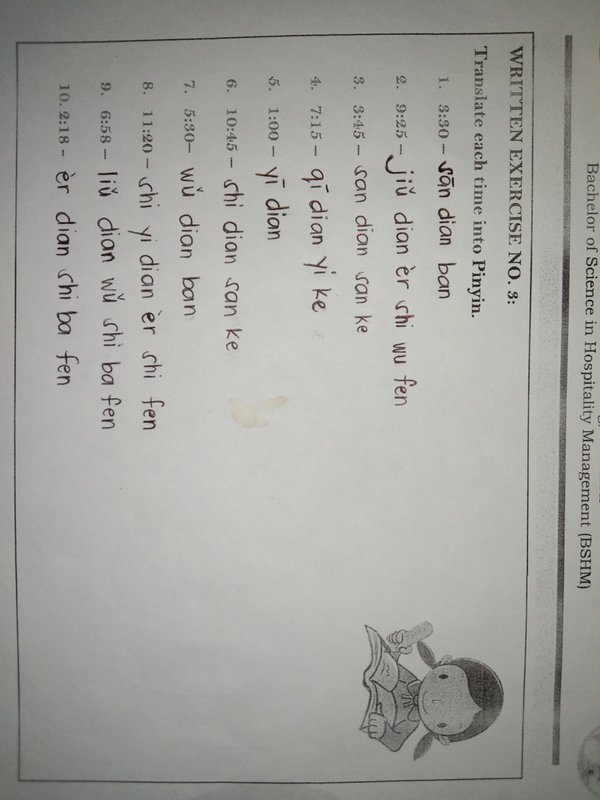 Bachelor of Science in Hospitality Management (BSHM)
WRITTEN EXERCISE NO. 3:
Translate each time into Pinyin.
1. 3:30 - sān dian ban
2. 9:25 - jiǔ dian èr shi wu fen
3. 3:45 - san dian san ke
4. 7:15 - qī dian yi ke
5. 1:00 - yī dian
6. 10:45 - shi dian san ke
7. 5:30 - wǔ dian ban
8. 11:20 - shi yi dian èr shi fen
9. 6:58 - liǔ dian wǔ shi ba fen
10. 2:18 - èr dian shi ba fen